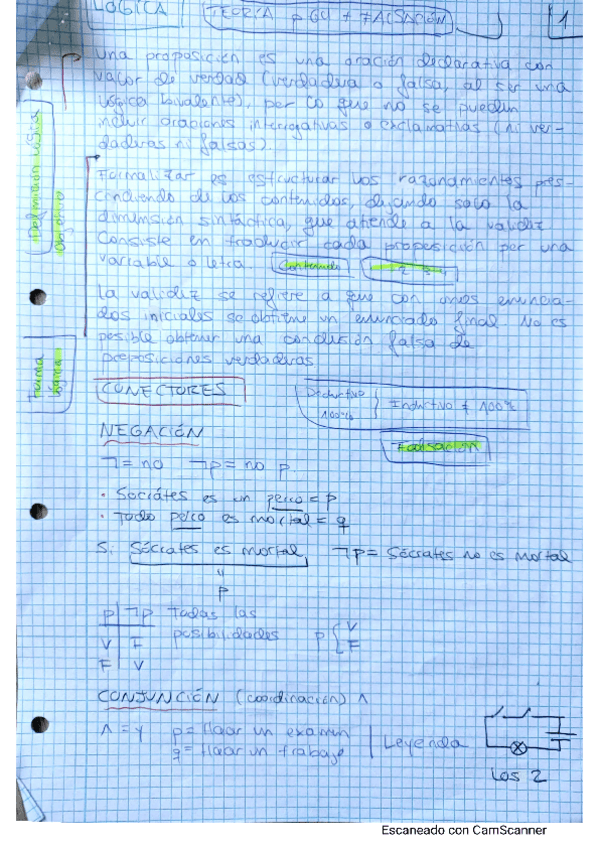 LÓGICA | TEORÍA FALSACIÓN 1
Una proposición es una oración declarativa con
valor de verdad (verdadera o falsa, al ser una
lógica bivalente), por lo que no se pueden
incluir oraciones interrogativas o exclamativas (ni ver-
daderas ni falsas).
Formalizar es estructurar los razonamientos pres-
cindiendo de los contenidos, dejando solo la
dimensión sintáctica, que atiende a la validez
Consiste en traducir cada proposición por una
variable o letra. Contenido
La validez se refiere a que con unos enuncia-
dos iniciales se obtiene un enunciado final. No es
posible obtener una conclusión falsa de
proposiciones verdaderas
CONECTORES
Deductivo 100% } Inductivo ≠ 100%
NEGACIÓN
Falsación
¬ = no ¬p = no p.
· Sócrates es un perro = p
· Todo perro es mortal = q
S: Sócrates es mortal, ¬p = Sócrates no es mortal
p
p | ¬p Todas las
V | F posibilidades p { V F
F | V
CONJUNCIÓN (coordinación) ∧
∧ = y p = Hacer un examen
q = Hacer un trabajo | Leyenda
Los 2
Escaneado con CamScanner